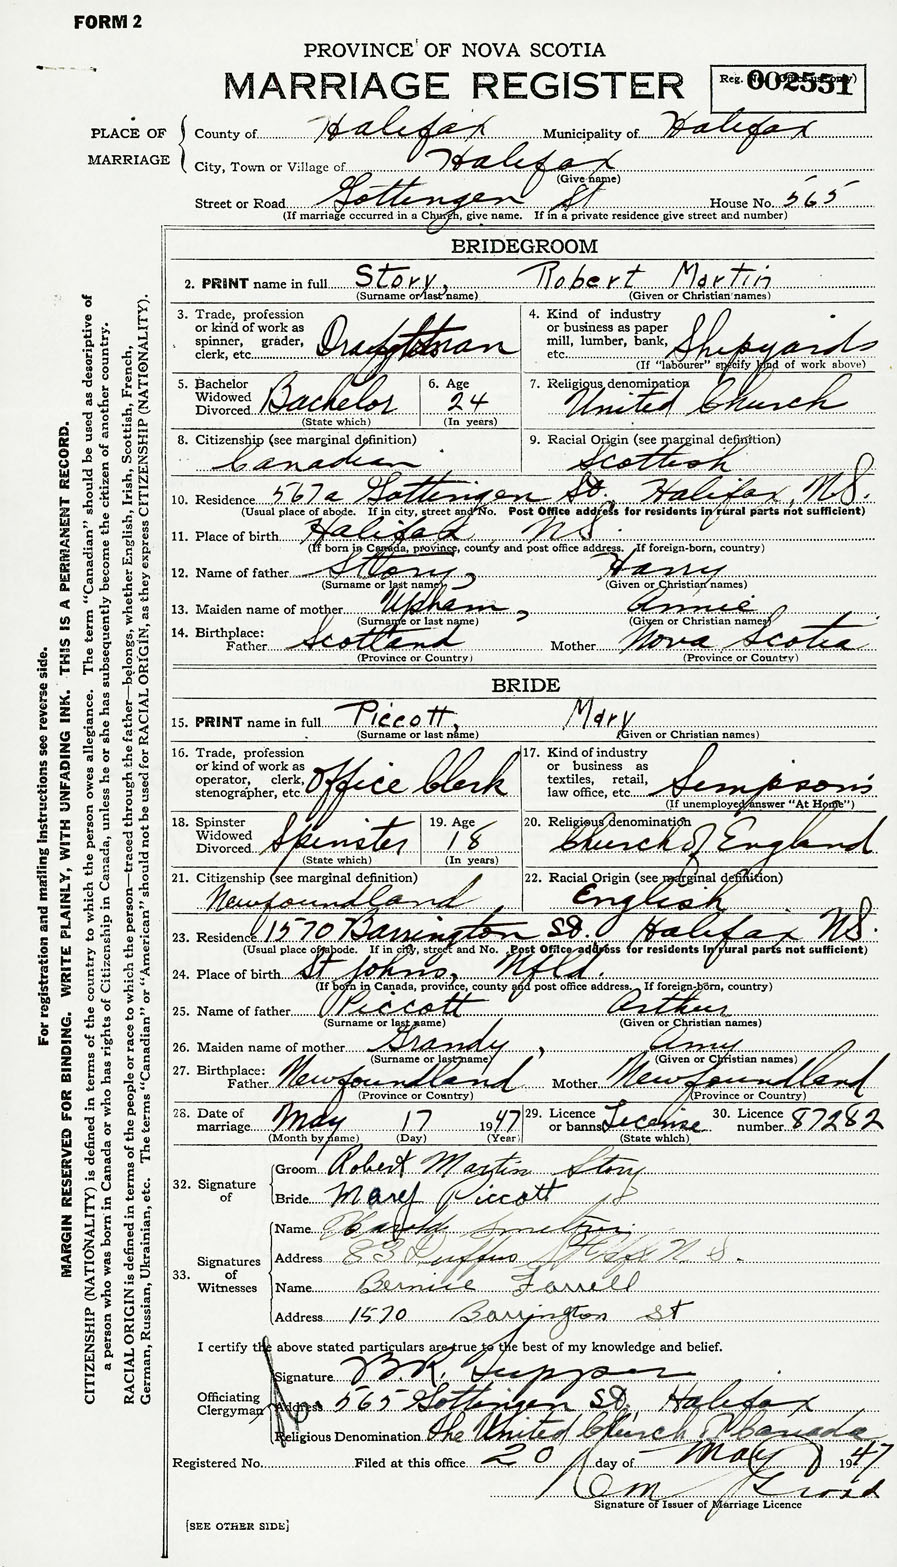 FORM 2
PROVINCE OF NOVA SCOTIA
MARRIAGE REGISTER
Reg. No. (Office use only)
002551
PLACE OF MARRIAGE
County of Halifax Municipality of Halifax
City, Town or Village of Halifax
(Give name)
Street or Road Gottingen St House No. 565
(If marriage occurred in a Church, give name. If in a private residence give street and number)
BRIDEGROOM
2. PRINT name in full Story, Robert Martin
(Surname or last name) (Given or Christian names)
3. Trade, profession or kind of work as spinner, grader, clerk, etc. Draughtsman
4. Kind of industry or business as paper mill, lumber, bank, etc. Shipyards
(If "labourer" specify kind of work above)
5. Bachelor Widowed Divorced Bachelor
(State which)
6. Age 24
(In years)
7. Religious denomination United Church
8. Citizenship (see marginal definition) Canadian
9. Racial Origin (see marginal definition) Scottish
10. Residence 567a Gottingen St, Halifax, N.S.
(Usual place of abode. If in city, street and No. Post Office address for residents in rural parts not sufficient)
11. Place of birth Halifax, N.S.
(If born in Canada, province, county and post office address. If foreign-born, country)
12. Name of father Story, Harry
(Surname or last name) (Given or Christian names)
13. Maiden name of mother Upham, Annie
(Surname or last name) (Given or Christian names)
14. Birthplace: Father Scotland Mother Nova Scotia
(Province or Country) (Province or Country)
BRIDE
15. PRINT name in full Piccott, Mary
(Surname or last name) (Given or Christian names)
16. Trade, profession or kind of work as operator, clerk, stenographer, etc. Office Clerk
17. Kind of industry or business as textiles, retail, law office, etc. Simpson's
(If unemployed answer "At Home")
18. Spinster Widowed Divorced Spinster
(State which)
19. Age 18
(In years)
20. Religious denomination Church of England
21. Citizenship (see marginal definition) Newfoundland
22. Racial Origin (see marginal definition) English
23. Residence 1570 Barrington St. Halifax N.S.
(Usual place of abode. If in city, street and No. Post Office address for residents in rural parts not sufficient)
24. Place of birth St Johns, Nfld.
(If born in Canada, province, county and post office address. If foreign-born, country)
25. Name of father Piccott Arthur
(Surname or last name) (Given or Christian names)
26. Maiden name of mother Grandy, Amy
(Surname or last name) (Given or Christian names)
27. Birthplace: Father Newfoundland Mother Newfoundland
(Province or Country) (Province or Country)
28. Date of marriage May 17 1947
(Month by name) (Day) (Year)
29. Licence or banns License
(State which)
30. Licence number 87282
32. Signature of
Groom Robert Martin Story
Bride Mary Piccott 18
33. Signatures of Witnesses
Name Harold
Address 83 Duffus St Hfx N.S.
Name Bernice Farrell
Address 1570 Barrington St
I certify the above stated particulars are true to the best of my knowledge and belief.
Officiating Clergyman
Signature B.R. Tupper
Address 565 Gottingen St, Halifax
Religious Denomination The United Church of Canada
Registered No. Filed at this office 20 day of May 1947
Signature of Issuer of Marriage Licence
[SEE OTHER SIDE]
For registration and mailing instructions see reverse side.
MARGIN RESERVED FOR BINDING. WRITE PLAINLY, WITH UNFADING INK. THIS IS A PERMANENT RECORD.
CITIZENSHIP (NATIONALITY) is defined in terms of the country to which the person owes allegiance. The term "Canadian" should be used as descriptive of
a person who was born in Canada or who has rights of Citizenship in Canada, unless he or she has subsequently become the citizen of another country.
RACIAL ORIGIN is defined in terms of the people or race to which the person—traced through the father—belongs, whether English, Irish, Scottish, French,
German, Russian, Ukrainian, etc. The terms "Canadian" or "American" should not be used for RACIAL ORIGIN, as they express CITIZENSHIP (NATIONALITY).